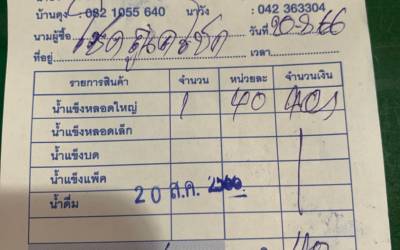 บ้านดุง :082 1055 640 นาวัง : 042 363304
นามผู้ซื้อ วันที่ 20-8-66
ที่อยู่ เวลา
รายการสินค้า จำนวน หน่วยละ จำนวนเงิน
น้ำแข็งหลอดใหญ่ 1 40 40
น้ำแข็งหลอดเล็ก
น้ำแข็งบด
น้ำแข็งแพ็ค
น้ำดื่ม 20 ส.ค. 2566
40